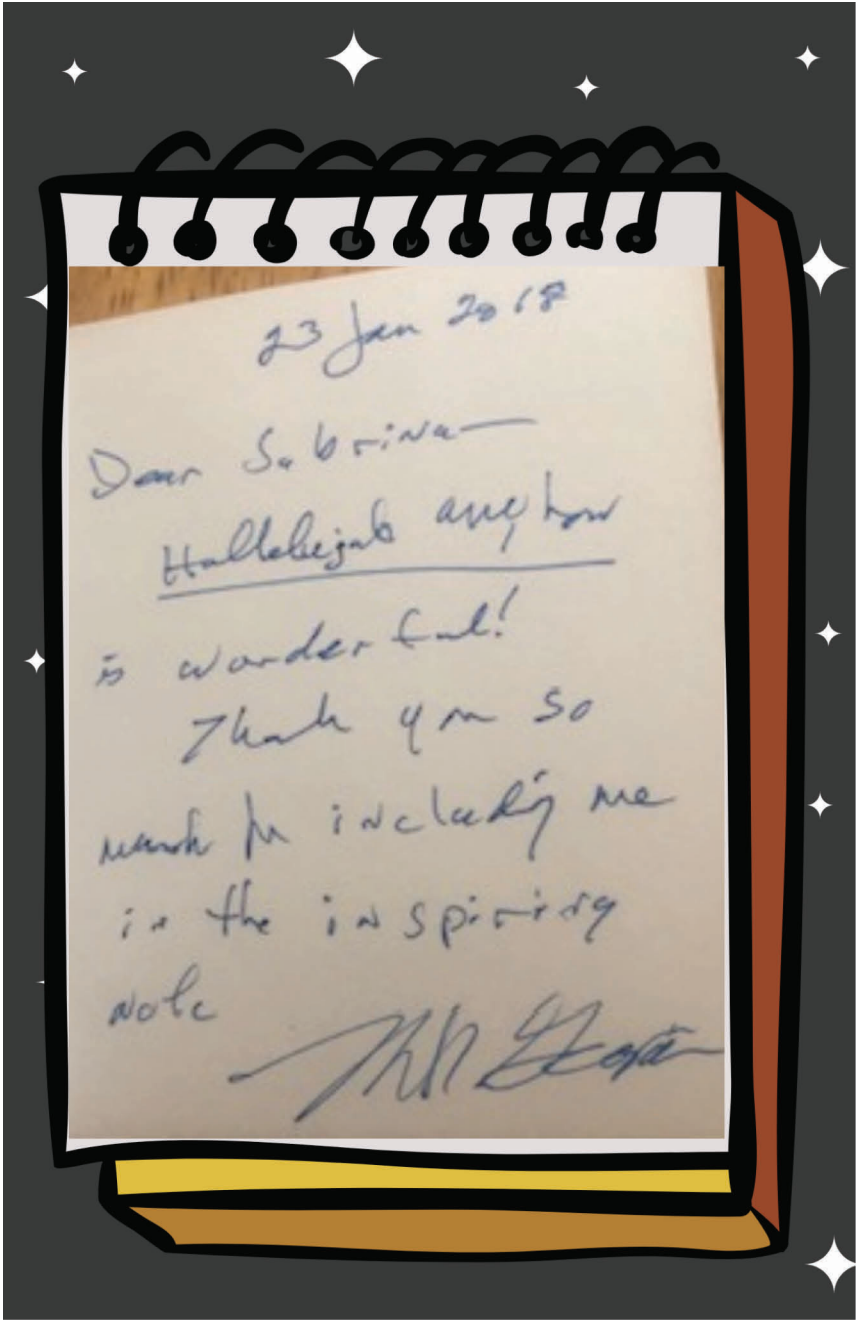 23 Jan 2018
Dear Sabrina—
Hallelujah anyhow
is wonderful!
Thank you so
much for including me
in the inspiring
note